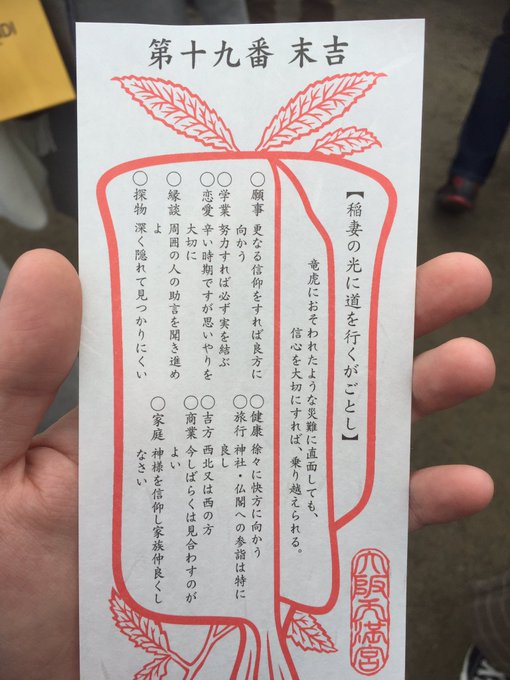 第十九番 末吉
【稲妻の光に道を行くがごとし】
竜虎におそわれたような災難に直面しても、
信心を大切にすれば、乗り越えられる。
○願事 更なる信仰をすれば良方に
向かう
○学業 努力すれば必ず実を結ぶ
○恋愛 辛い時期ですが思いやりを
大切に
○縁談 周囲の人の助言を聞き進め
よ
○探物 深く隠れて見つかりにくい
○健康 徐々に快方に向かう
○旅行 神社・仏閣への参詣は特に
良し
○吉方 西北又は西の方
○商業 今しばらくは見合わすのが
よい
○家庭 神様を信仰し家族仲良くし
なさい
大阪天満宮